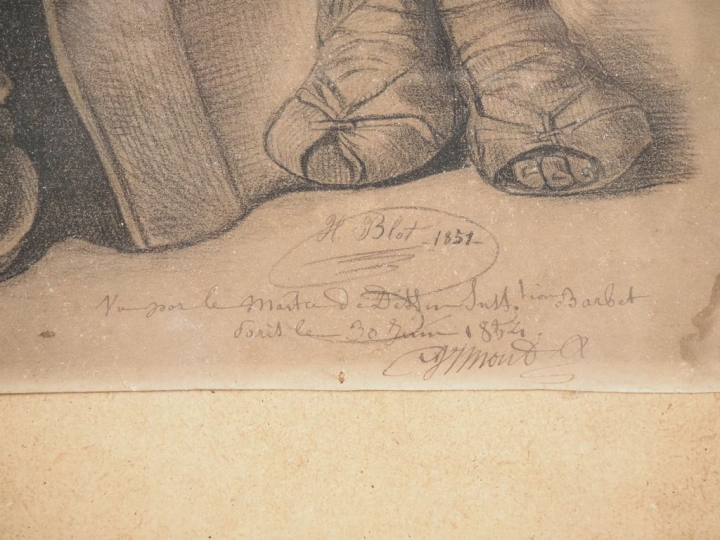 H. Blot - 1851 -
Vu par le Maitre de Dessin Inst.tion Barbet
Paris le 30 Juin 1851.